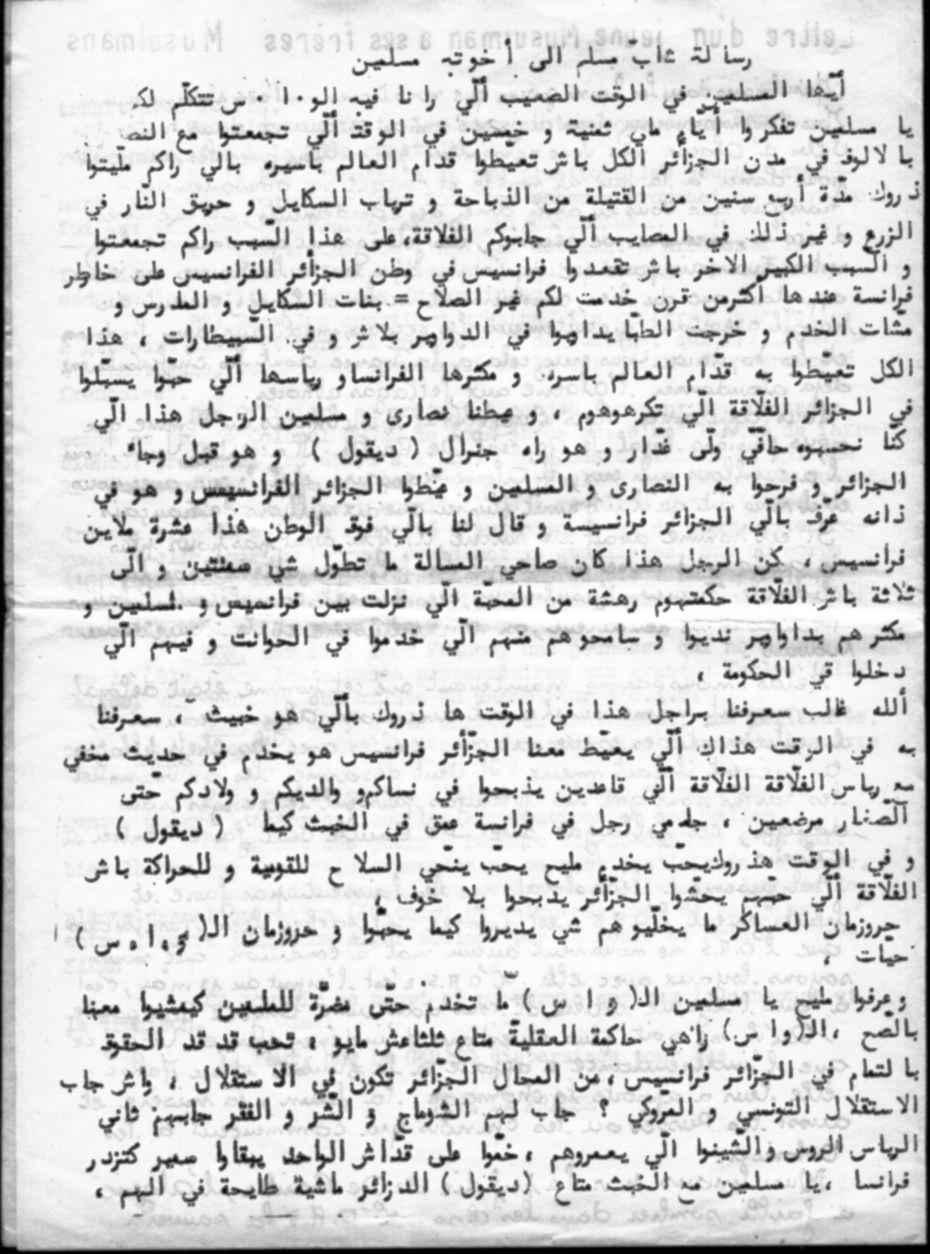 رسالة شابّ مسلم الى أخوته مسلمين
أيّها المسلمين في الوقت الصعيب ألّي رانا فيه الو٠ا٠س تتكلّم لكم
يا مسلمين تفكروا أيّاء ماي ثمنية و خمسين في الوقت ألّي تجمعتوا مع النص
بالالوف في مدن الجزأئر الكل باش تعيّطوا قدام العالم باسره بالي راكم ملّيتوا
ذروك مدّة أربع سنين من القتيلة من الذباحة و تهاب السكايل و حريق النّار في
الزرع و غير ذلك في المصايب ألّي جابوكم الفلاقة،على هذا السّبب راكم تجمعتوا
و السبب الكبير الاخر باش تقعدوا فرانسيس في وطن الجزأئر الفرانسيس على خاطر
فرانسة عندها اكثرمن قرن خدمت لكم غير الصلاح = بنات السكايل و المدرس و
مشّات الخدم و خرجت الطبّا يداويوا في الدواوير بلاش و في السّبيطارات ، هذا
الكل تعيّطوا به قدّام العالم باسره و مكثرها الفرانساو رياسها ألّي حبّوا يسبلوا
في الجزائر الفلّاقة ألّي تكرهوهم ، و عيطنا نصارى و مسلمين الرجل هذا الّي
كنّا نحسبوه حاقّي ولّى غدّار و هو راه جنرال ( ديقول ) و هو قبل وجاء
الجزائر و فرحوا به النصارى و المسلمين و عيّطوا الجزائر الفرانسيس و هو في
ذاته عرّف بألّي الجزائر فرانسيسة و قال لنا بألّي فوق الوطن هذا عشرة ملاين
فرانسيس ، كن الرجل هذا كان صاحي المسالة ما تطوّل شي سنتين و الّى
ثلاثة باش الفلّاقة حكمتهوم رهشة من المحبّة الّي نزلت بين فرانسيس و لسلمين و
مكثرهم بداواوير نديوا و سامحوهم منهم الّي خدموا في الحوانت و فيهم الّي
دخلوا في الحكومة ،
ألله غالب سعرفنا براجل هذا في الوقت ها ذروك بألّي هو خبيث ، سعرفنا
به في الوقت هذاك ألّي يعيّط معنا الجزّأئر فرانسيس هو يخدم في حديث مخفي
مع رياس الفلّاقة الفلّاقة ألّي قاعدين يذبحوا في نساكرو والديكم و ولادكم حتّى
الصّغار مرضعين ، جامي رجل في فرانسة عمق في الخبث كيما ( ديقول )
و في الوقت هذروك يحّب يخدع مليح يحّب ينحّي السلاح للقومية و للحراكة باش
الفلّاقة ألّي حبّهم يحشّوا الجزّأئر يذبحوا بلا خوف ،
حروزمان العساكر ما يخلّيوهم شي يديروا كيما يحبّوا و حروزمان الـ( و،ا،س )
حيّات ،
وعرفوا مليح يا مسلمين الـ( و ا س ) ما تخدم حتّى مضرّة للملعين كيمشيوا معنا
بالصّح ، الـ( و ا س) راهي حاكمة العقليةّ متاع ثلثاعش مايو ، تحب قد قد الحقوق
بالتمام في الجزّأئر فرانسيس، من المحال الجزّأئر تكون في الاستقلال ، واش جاب
الاستقلال التونسي و المروكي ؟ جاب ليهم الشّوماج و الشّر و الفقر جابهم ثاني
الرياس الروس و الشّينوا الّي يعمروهم ، خمّوا على قدّاش الواحد يبقاوا سعير كتزدر
فرانسا ، يا مسلمين مع الخبث متاع (ديقول ) الدزائر ماشية طايحة في الهم ،